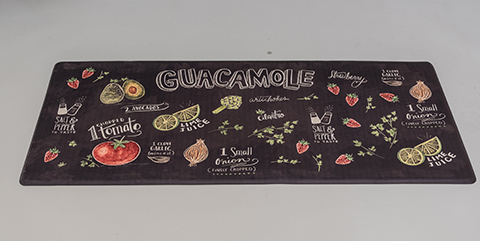 GUACAMOLE
Strawberry
1 CLOVE
GARLIC
(MINCED)
2 AVOCADOS
artichokes
SALT &
PEPPER
TO TASTE
CHOPPED
1 Tomato
LIME
JUICE
cilantro
SALT
&
PEPPER
TO TASTE
1 Small
Onion
(FINELY CHOPPED)
1 CLOVE
GARLIC
(MINCED)
1 Small
Onion
(FINELY CHOPPED)
LIME
JUICE